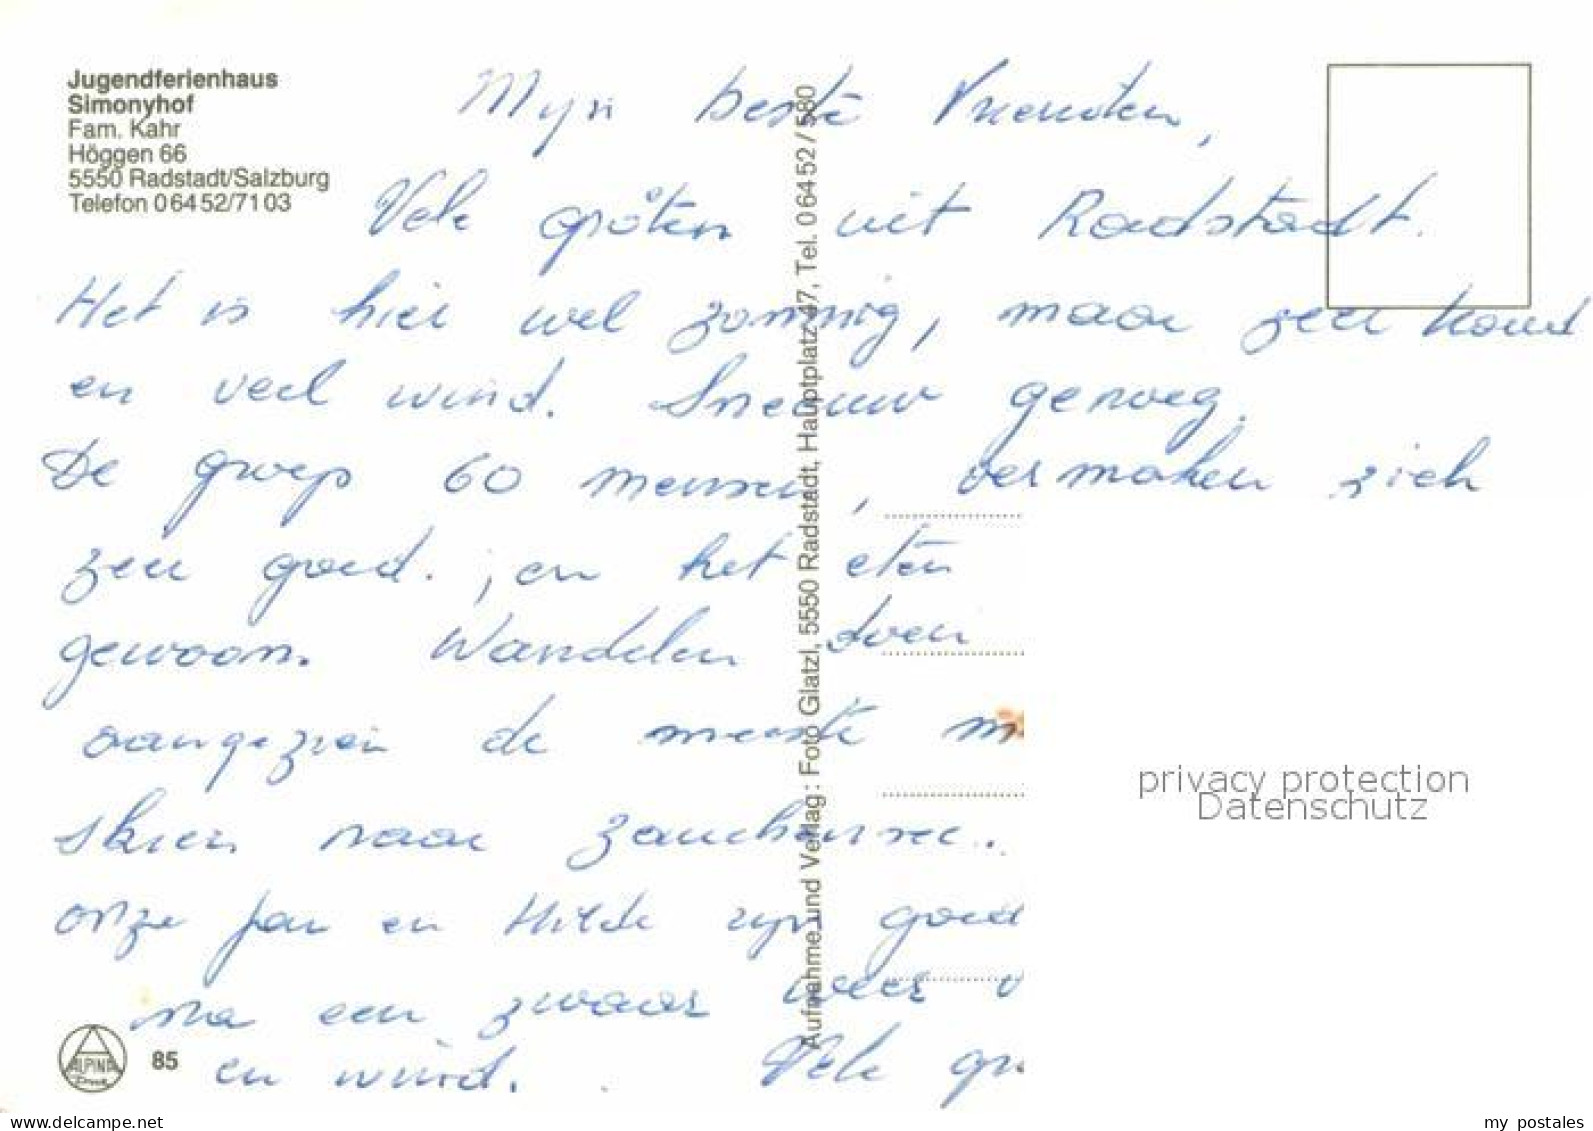 Jugendferienhaus
Simonyhof
Fam. Kahr
Höggen 66
5550 Radstadt/Salzburg
Telefon 06452/7103
Myn beste Vrienden,
Vele gröten uit Radstadt.
Het is hier wel zonnig, maar zeer koud
en veel wind. Sneeuw genoeg.
De groep 60 mensen, vermaken zich
zeer goed. , en het eten
gewoon. Wandelen doen
aangezien de meeste m
skien naar Zauchensee.
onze Jan en Hilde zyn goed
na een zwaar weer
en wind. Vele gr
Aufnahme und Verlag: Foto Glatzl, 5550 Radstadt, Hauptplatz 47, Tel. 06452/580
privacy protection
Datenschutz
ALPINA
Druck
85
www.delcampe.net
my_postales